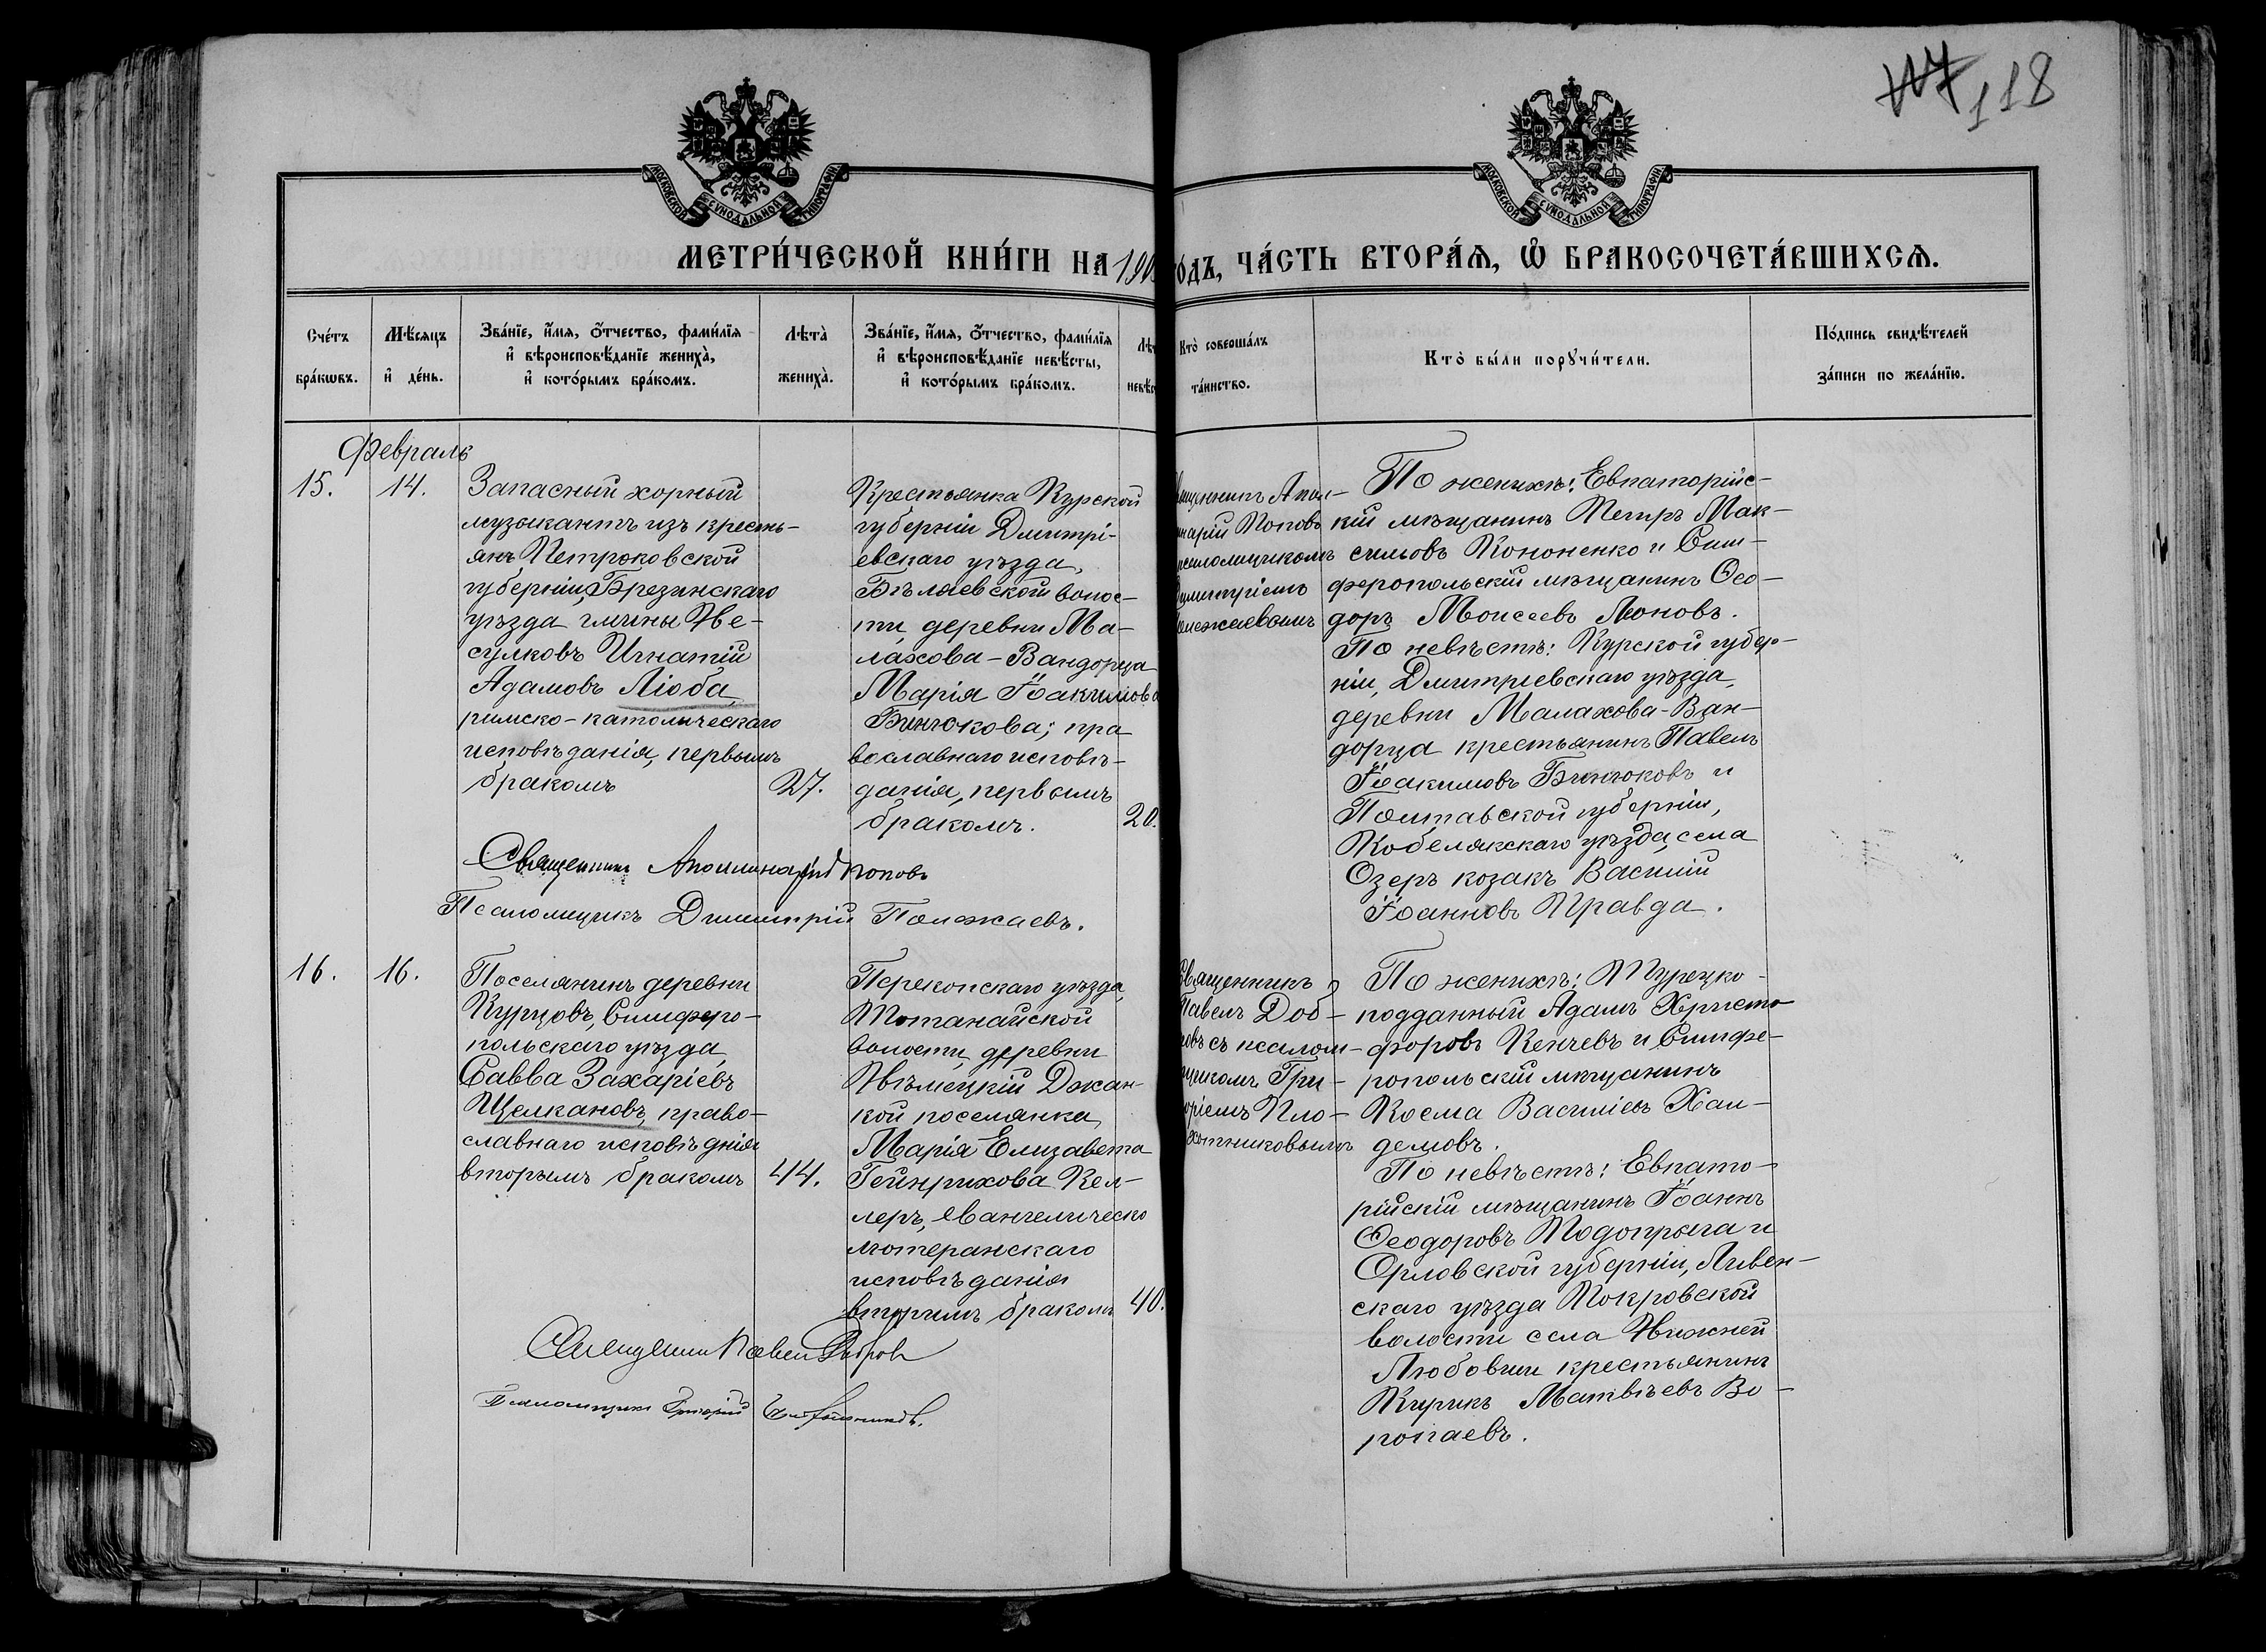 117 118
МОСКОВСКОЙ СѴНОДАЛЬНОЙ ТИПОГРАФІИ
МОСКОВСКОЙ СѴНОДАЛЬНОЙ ТИПОГРАФІИ
МЕТРИ́ЧЕСКОЙ КНИ́ГИ НА 190
ГО́ДЪ, ЧА́СТЬ ВТОРА́Я, Ѽ БРАКОСОЧЕТА́ВШИХСЯ.
Сче́тъ
бра́кѡвъ.
Мѣ́сяцъ
и҆ де́нь.
Зва́нїе, и҆́мя, ѻ҆́тчество, фами́лїя
и҆ вѣроисповѣ́данїе жениха̀,
и҆ кото́рымъ бра́комъ.
Лѣта̀
жениха̀.
Зва́нїе, и҆́мя, ѻ҆́тчество, фами́лїя
и҆ вѣроисповѣ́данїе невѣ́сты,
и҆ кото́рымъ бра́комъ.
Лѣт
невѣс
Кто̀ соверша́лъ
та́инство.
Кто̀ бы́ли порꙋчи́тели.
По́дпись свидѣ́телей
за́писи по жела́нїю.
Февраль
15.
14.
Запасный хорный
музыкантъ изъ кресть-
янъ Петроковской
губерніи, Брезинскаго
уѣзда гмины Не-
сулковъ Игнатій
Адамовъ Люба,
римско-католическаго
исповѣданія, первымъ
бракомъ
27.
Крестьянка Курской
губерніи Дмитрі-
евскаго уѣзда,
Бѣляевской волос-
ти, деревни Ма-
лахова-Вандорца
Марія Іоакимова
Бинюкова; пра
вославнаго исповѣ-
данія, первымъ
бракомъ.
20.
вященникъ Апол-
инарій Поповъ
псаломщикомъ
Димитріемъ
олежаевымъ
По женихѣ: Евпаторійс-
кій мѣщанинъ Петръ Мак-
симовъ Кононенко и Сим-
феропольскій мѣщанинъ Ѳео-
доръ Моисеевъ Поповъ.
По невѣстѣ: Курской губер-
ніи, Дмитріевскаго уѣзда,
деревни Малахова-Ван-
дорца крестьянинъ Павелъ
Іоакимовъ Бинюковъ и
Полтавской губерніи,
Кобелякскаго уѣзда, села
Озеръ козакъ Василій
Іоанновъ Правда.
Священникъ Аполлинарій Поповъ
Псаломщикъ Димитрій Полежаевъ.
16.
16.
Поселянинъ деревни
Курцовъ, Симферо-
польскаго уѣзда
Савва Захаріевъ
Щелкановъ, право-
славнаго исповѣднія
вторымъ бракомъ
44.
Перекопскаго уѣзда,
Тотанайской
волости, деревни
Нѣмецкій Джан-
кой поселянка
Марія Елизавета
Гейнрихова Кел-
леръ, евангелическо
лютеранскаго
исповѣданія
вторымъ бракомъ
40.
Священникъ
Павелъ Доб-
ровъ съ псалом-
щикомъ Гри-
оріемъ Пло-
хотниковымъ
По женихѣ: Турецко-
подданный Адамъ Христо
форовъ Кенчевъ и Симфе-
ропольскій мѣщанинъ
Косма Василіевъ Хан-
демовъ.
По невѣстѣ: Евпато-
рійскій мѣщанинъ Іоаннъ
Ѳеодоровъ Подопрыга и
Орловской губерніи, Ливен-
скаго уѣзда Покровской
волости села Нижней
Любовши крестьянинъ
Кирикъ Матвѣевъ Во-
ропаевъ.
Священникъ Павелъ Добровъ
Псаломщикъ Григорій Плохотниковъ.